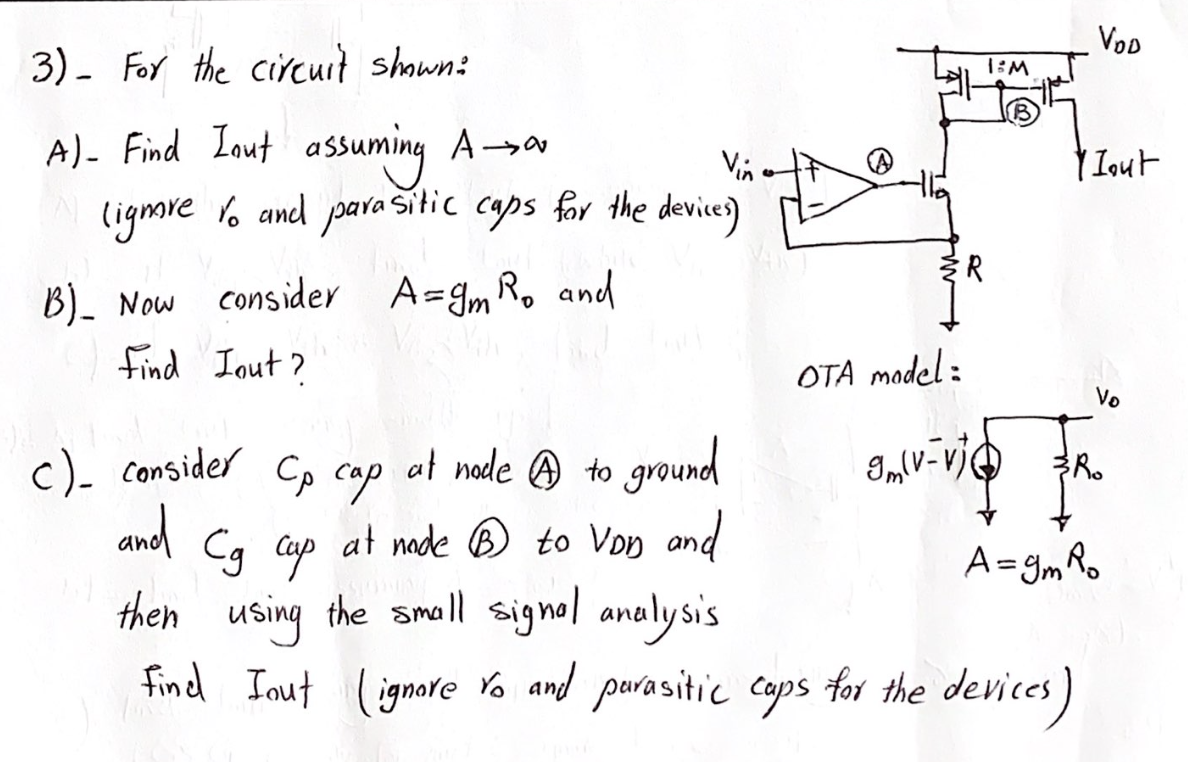 3)- For the circuit shown:
A)- Find Iout assuming A→∞
(ignore ro and parasitic caps for the devices)
B)- Now consider A=gm Ro and
find Iout?
C)- consider Cp cap at node Ⓐ to ground
and Cg cap at node Ⓑ to VDD and
then using the small signal analysis
find Iout (ignore ro and parasitic caps for the devices)
VDD
1:M
Ⓑ
Vin
+
-
Ⓐ
Iout
R
OTA model:
Vo
gm(V⁻-V⁺)
Ro
A=gm Ro